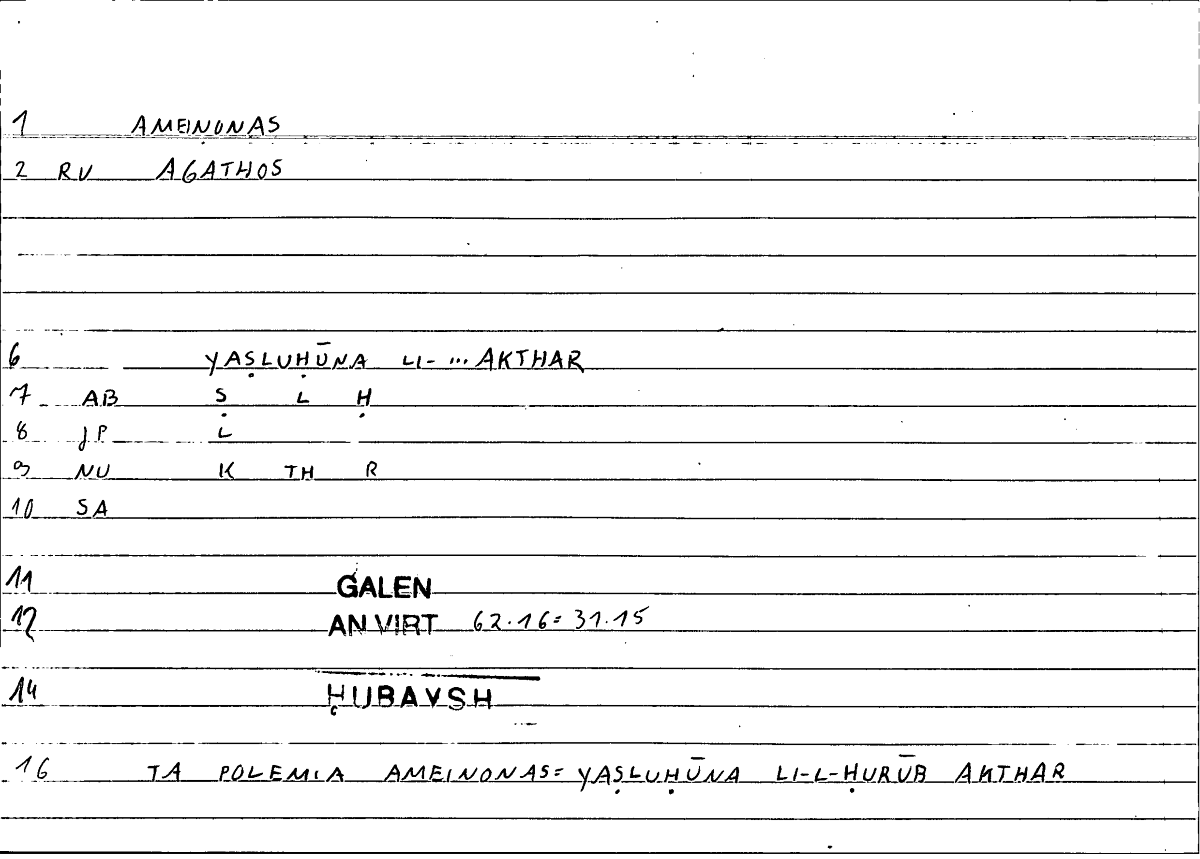 1 AMEINONAS
2 RV AGATHOS
6 YAṢLUḤŪNA LI- ... AKTHAR
7 AB Ṣ L Ḥ
8 JP L
9 NU K TH R
10 SA
11 GALEN
12 AN VIRT 62.16= 31.15
14 ḤUBAYSH
16 TA POLEMIA AMEINONAS= YAṢLUḤŪNA LI-L-ḤURŪB AKTHAR